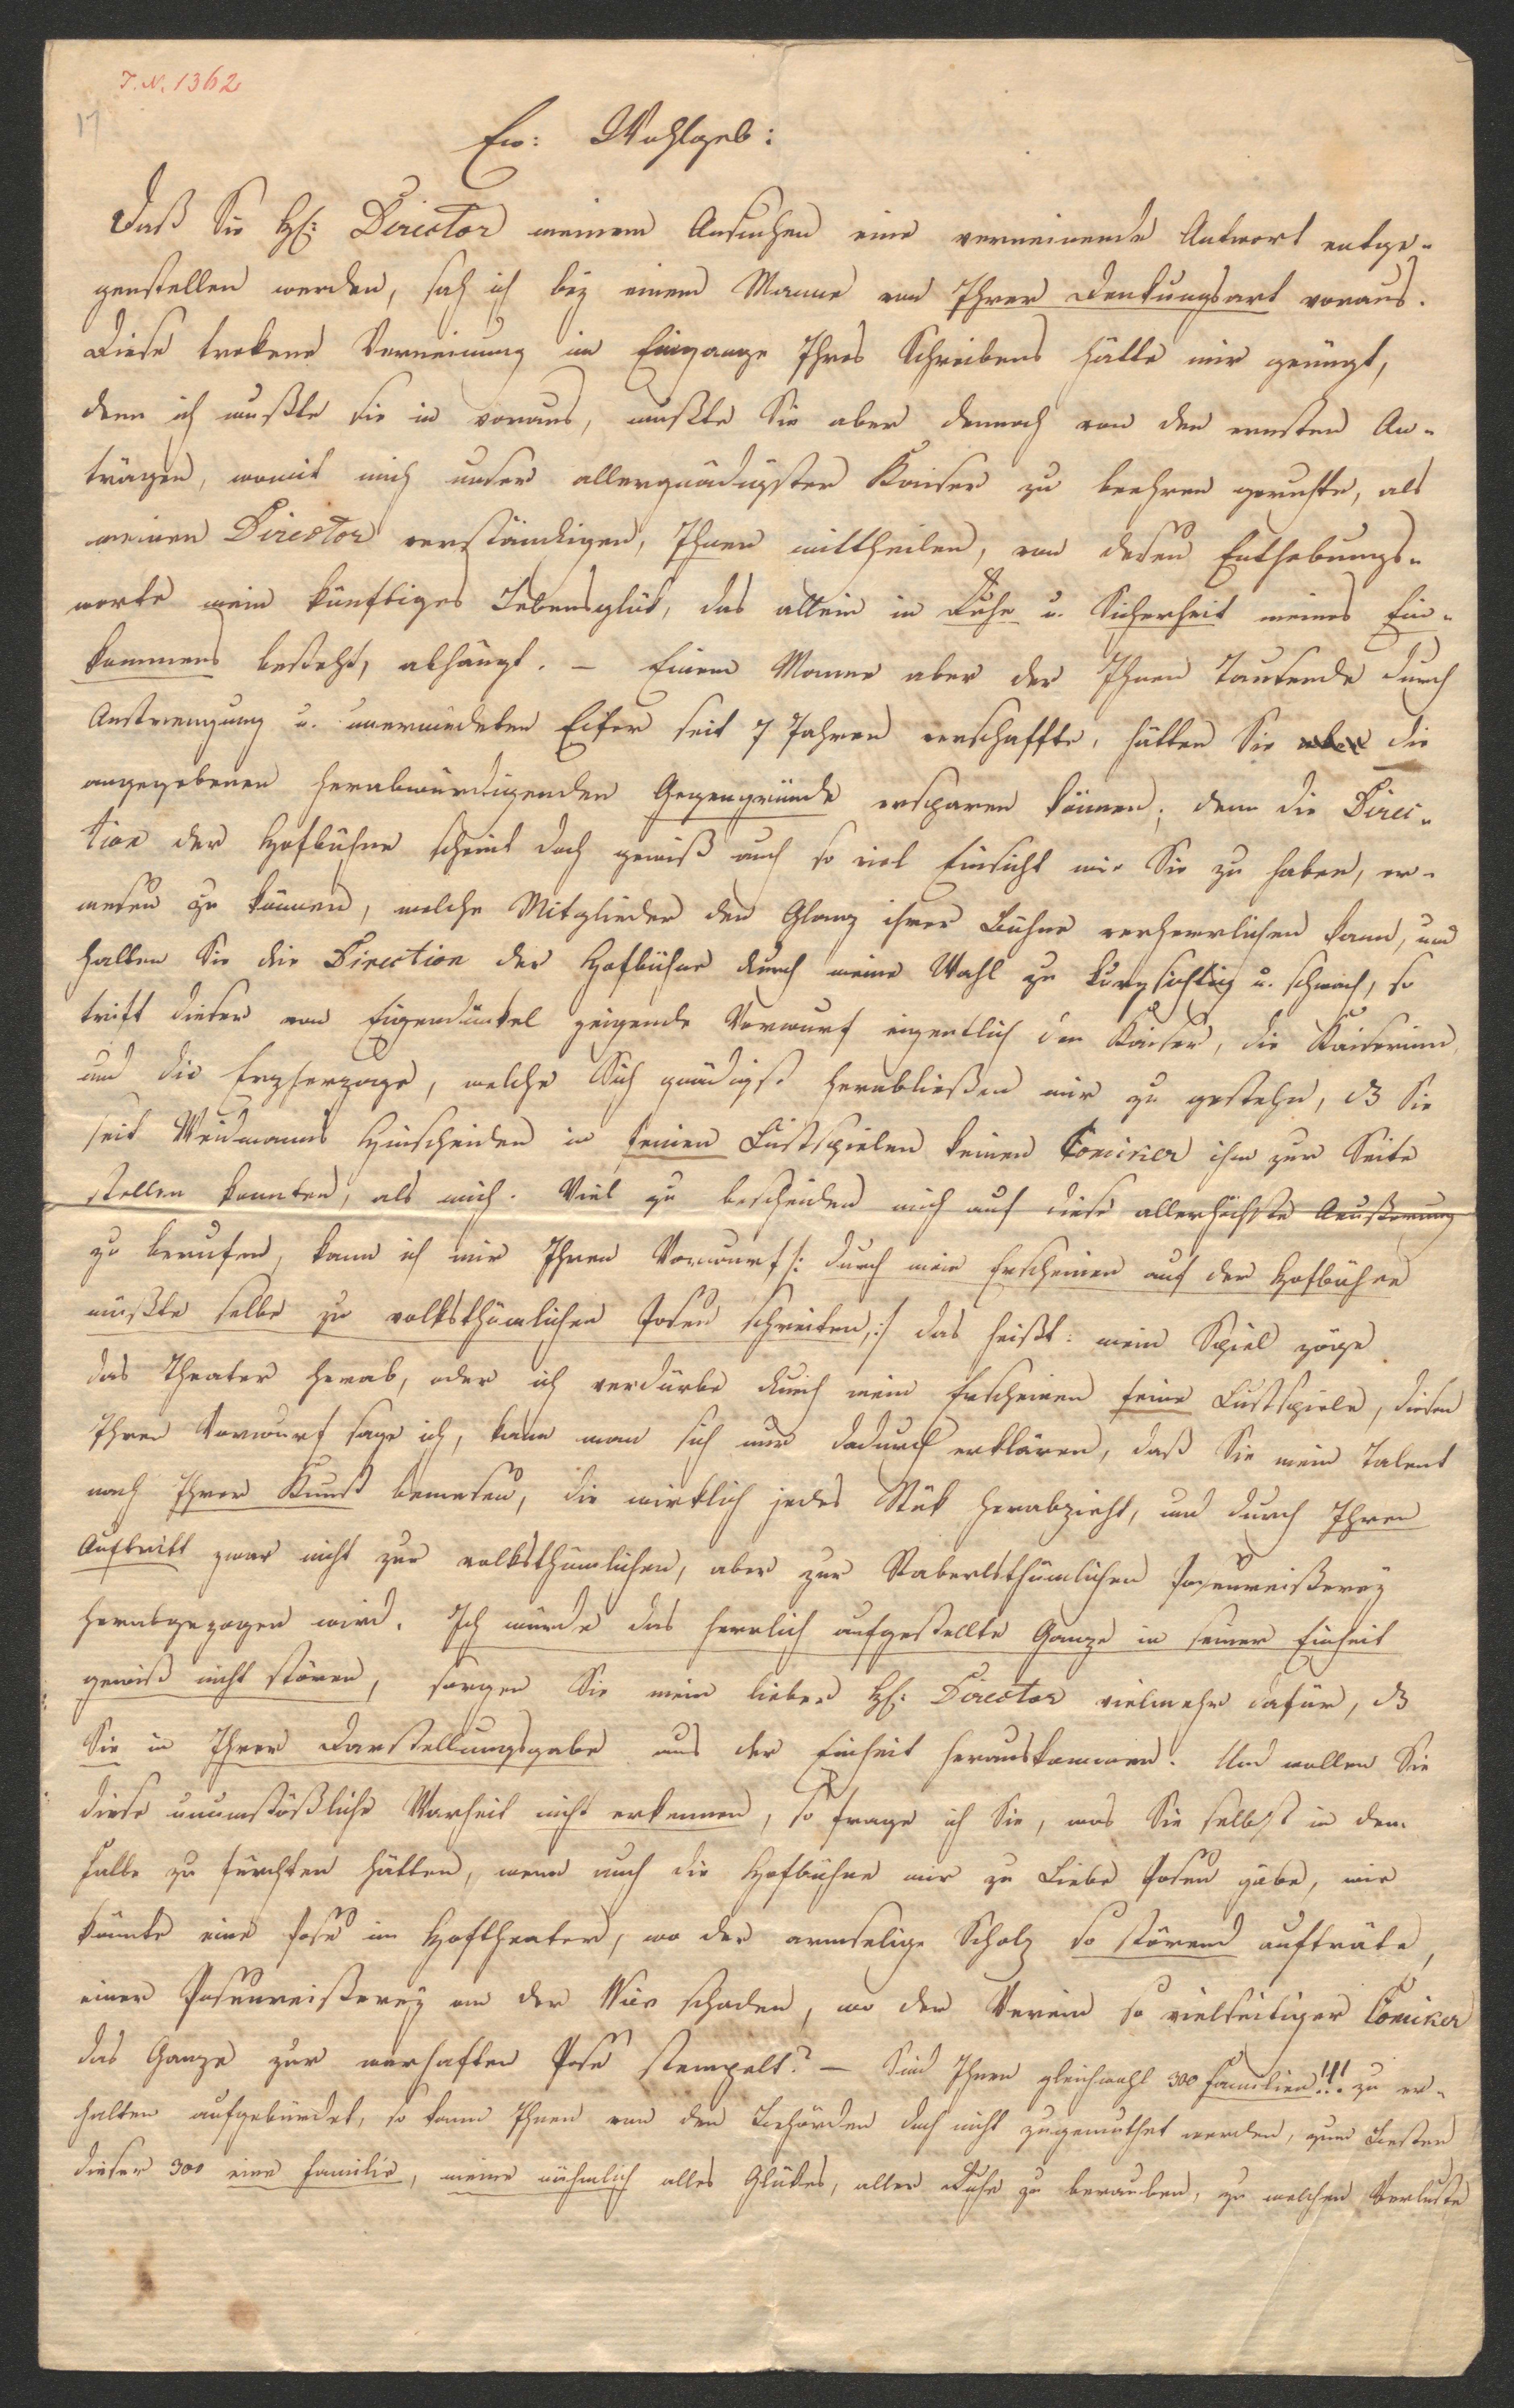 I. N. 1362
17
Ew: Wohlgeb:
Daß Sie H: Director meinem Ansuchen eine verneinende Antwort entge-
genstellen werden, sah ich bey einem Manne von Ihrer Denkungsart voraus.
Diese trokene Verneinung im Eingange Ihres Schreibens hätte mir genügt,
denn ich wußte sie im voraus, mußte Sie aber dennoch von den ernsten An-
trägen, womit mich unser allergnädigster Kaiser zu beehren geruhte, als
meinen Director verständigen, Ihnen mittheilen, von dessen Enthebungs-
worte mein künftiges Lebensglük, das allein in Ruhe u. Sicherheit meines Ein-
kommens besteht, abhängt. – Einem Manne aber der Ihnen Tausende durch
Anstrengung u. unermüdeten Eifer seit 7 Jahren verschaffte, hätten Sie aber die
angegebenen herabwürdigenden Gegengründe ersparen können; denn die Direc-
tion der Hofbühne scheint doch gewiß auch so viel Einsicht wie Sie zu haben, er-
messen zu können, welche Mitglieder den Glanz ihrer Bühne verherrlichen kann, und
halten Sie die Direction der Hofbühne durch meine Wahl zu kurzsichtig u. schwach, so
trift dieser von Eigendünkel zeigende Vorwurf eigentlich den Kaiser, die Kaiserinn
und die Erzherzoge, welche Sich gnädigst herabließen mir zu gestehn, dß Sie
seit Weidmanns Hinscheiden in feinen Lustspielen keinen Comiker ihm zur Seite
stellen konnten, als mich. Viel zu bescheiden mich auf diese allerhöchste Aeußerung
zu berufen, kann ich mir Ihren Vorwurf /: durch mein Erscheinen auf der Hofbühne
müßte selbe zu volksthümlichen Possen schreiten, :/ das heißt: mein Spiel zöge
das Theater herab, oder ich verdürbe durch mein Erscheinen feine Lustspiele, diesen
Ihren Vorwurf sage ich, kann man sich nur dadurch erklären, daß Sie mein Talent
nach Ihrer Kunst bemessen, die wirklich jedes Stük herabzieht, und durch Ihren
Auftritt zwar nicht zur volksthümlichen, aber zur Staberlsthümlichen Possenreißerey
herabgezogen wird. Ich würde das herrlich aufgestellte Ganze in seiner Einheit
gewiß nicht stören, sorgen Sie mein lieber H: Director vielmehr dafür, dß
Sie in Ihrer Darstellungsgabe aus der Einheit herauskommen. Und wollen Sie
diese unumstößliche Warheit nicht erkennen, so frage ich Sie, was Sie selbst in dem
Falle zu fürchten hätten, wenn auch die Hofbühne mir zu Liebe Possen gäbe, wie
könnte eine Posse im Hoftheater, wo der armselige Scholz so störend aufträte,
einer Possenreißerey an der Wien schaden, wo der Verein so vielseitiger Comiker
das Ganze zur warhaften Posse stempelt? – Sind Ihnen gleichwohl 300 Familien!!! zu er-
halten aufgebürdet, so kann Ihnen von den Behörden doch nicht zugemuthet werden, zum Besten
dieser 300 eine Familie, meine nähmlich alles Glükes, aller Ruhe zu berauben, zu welchen Verluste